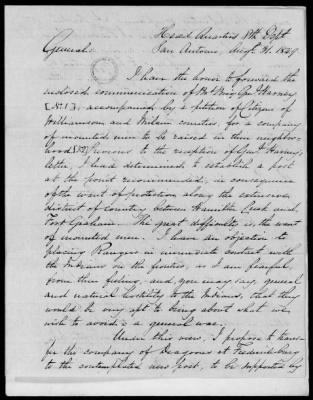 Head Quarters 8th Dept
San Antonio, Augt. 31. 1849
General:
I have the honor to forward the
enclosed communication of Bt Brig Genl Harney
[No 1], accompanied by a petition of citizens of
Williamson and Milam counties, for a company
of mounted men to be raised in their neighbor-
hood. Previous to the reception of Genl Harney's
letter, I had determined to establish a post
at the point recommended, in consequence
of the want of protection along the extensive
district of country between Hamilton Creek and
Fort Graham. The great difficulty is the want
of mounted men. I have an objection to
placing Rangers in immediate contact with
the Indians on the frontier, as I am fearful,
from their feeling, and, you may say, general
and natural hostility to the Indians, that they
would be very apt to bring about what we
wish to avoid: a general war.
Under this view, I propose to trans-
fer the company of Dragoons at Fredericksburg
to the contemplated new post, to be supported by